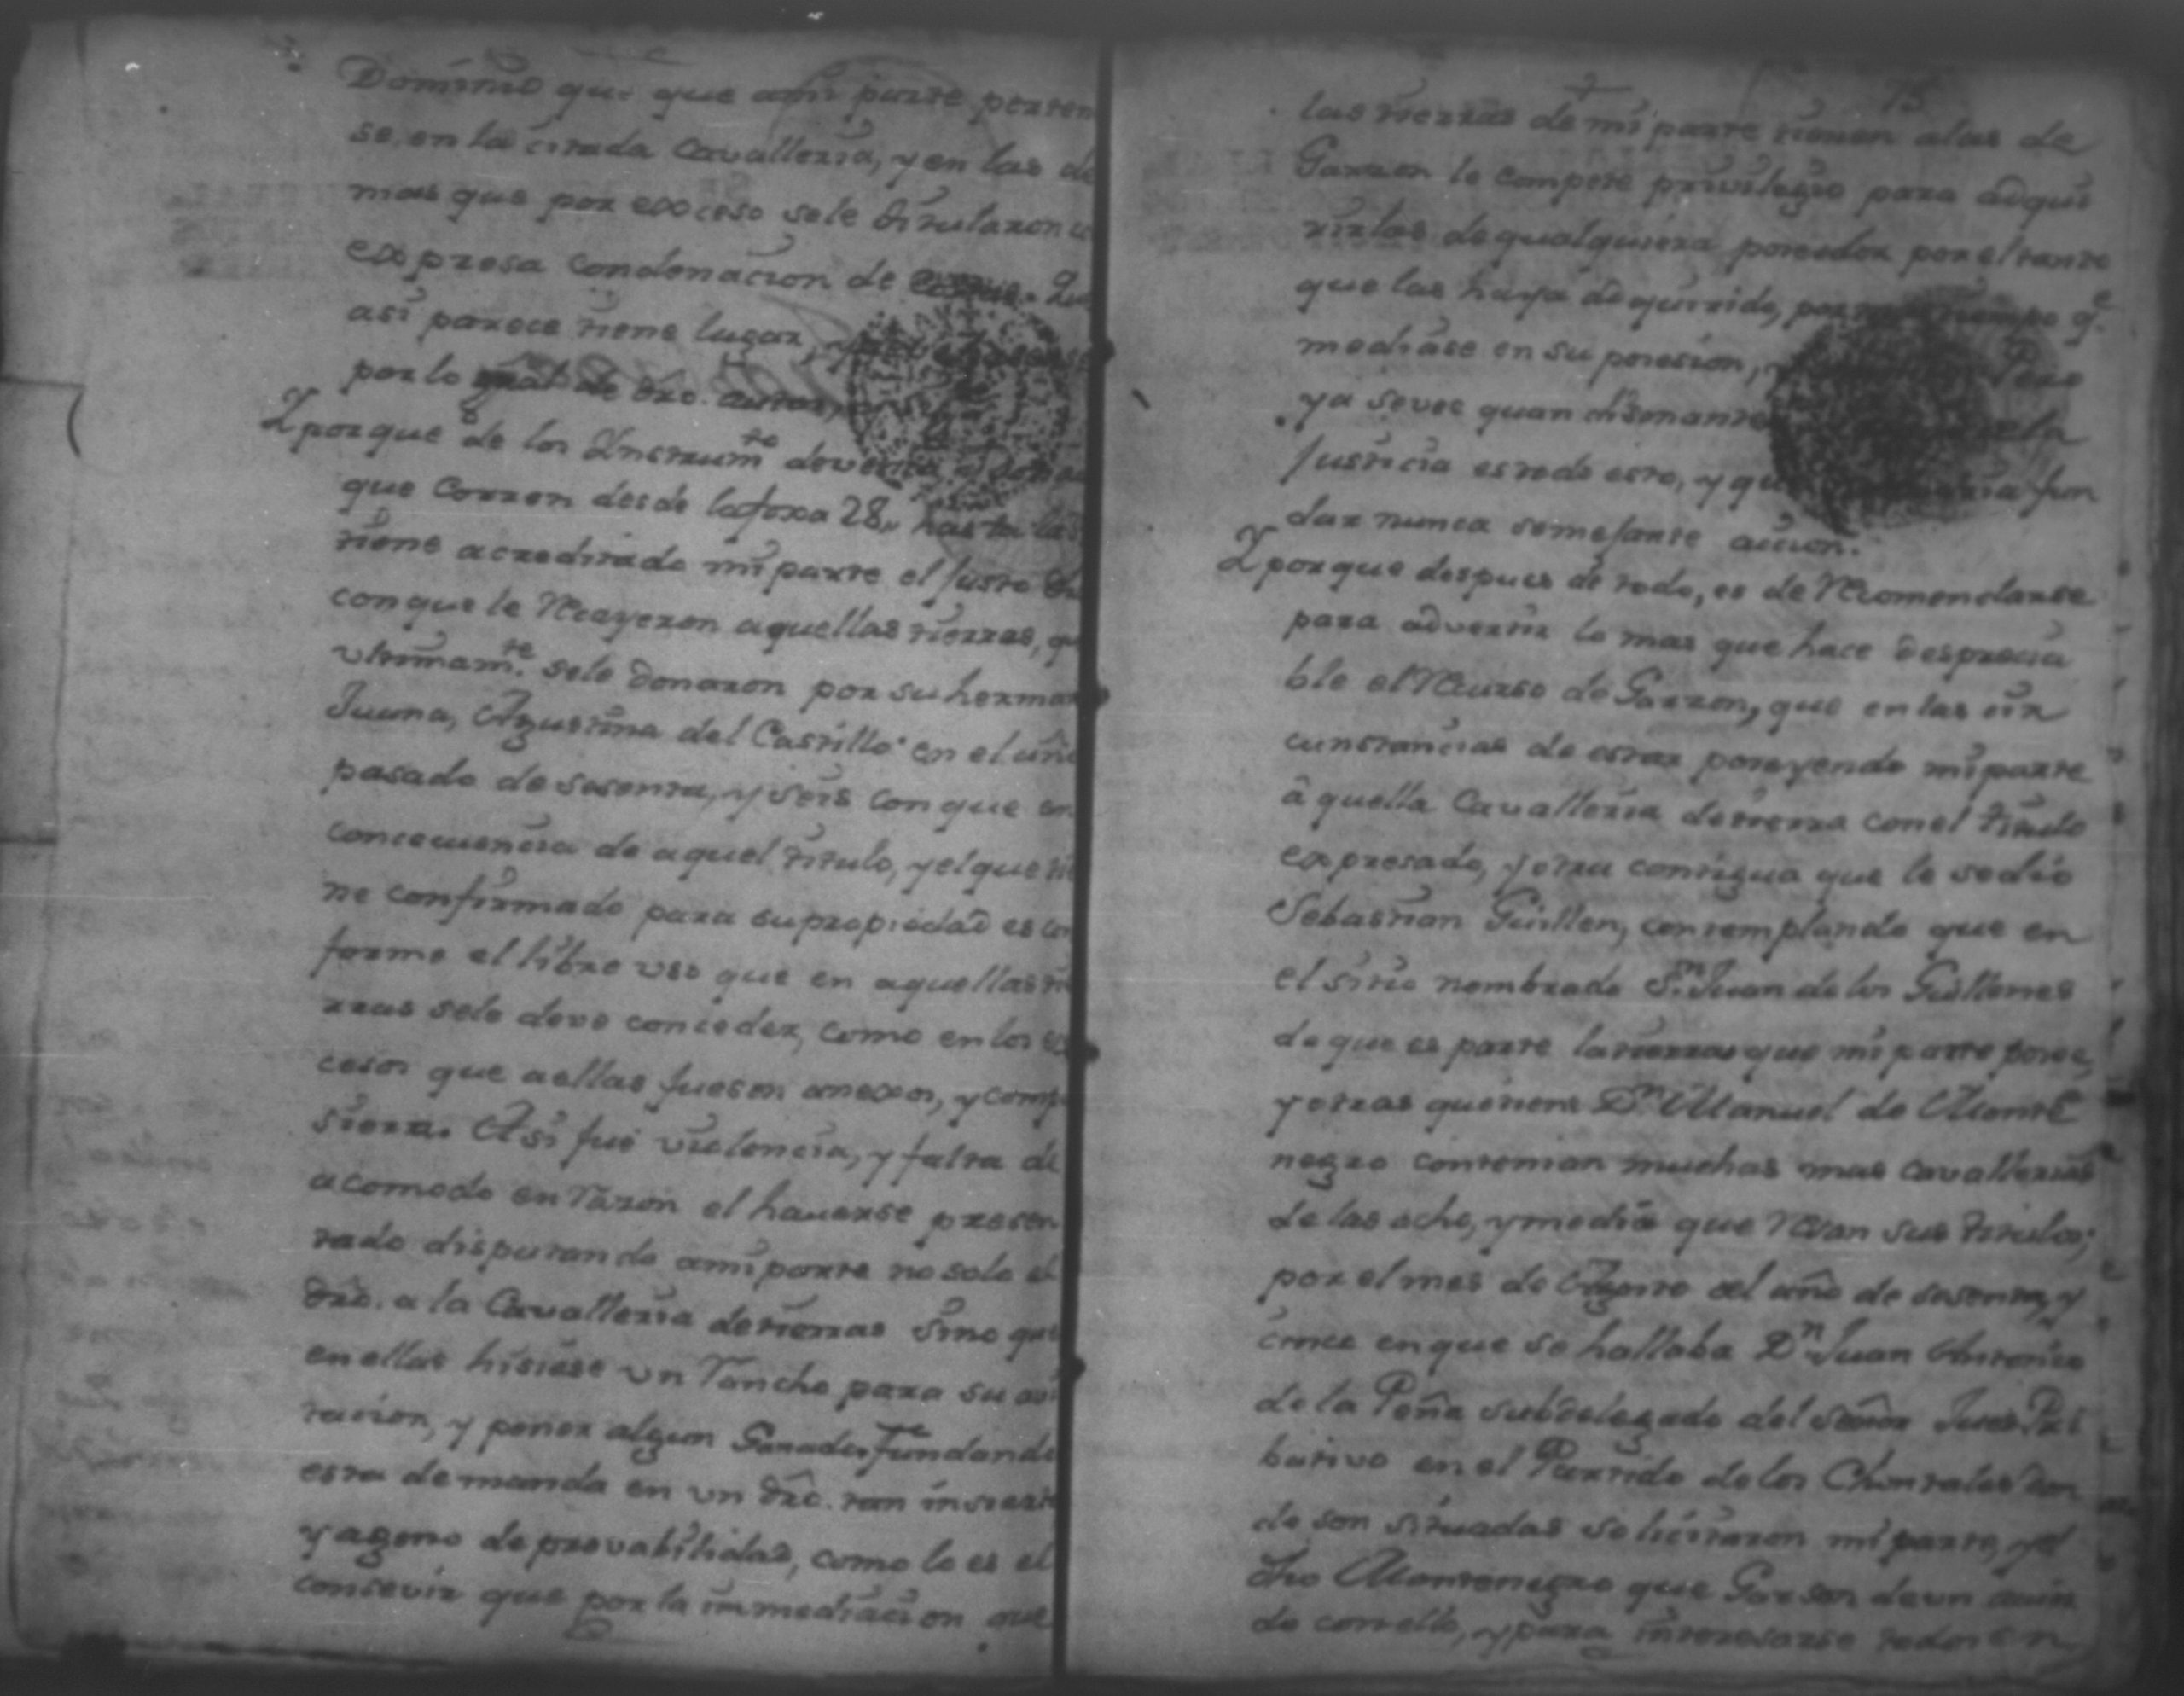 Dominio que que ami parte perten
se, en la citada Cavalleria, y en las de
mas que por exceso sele titularon
expresa condenacion de
asi parece tiene lugar,
por lo gral de dro.
Y porque de los Ynstrumtos
que Corren desde lafoxa 28,, hasta la
tiene acreditado mi parte el Justo
con que le Recayeron aquellas tierras, que
vltimamte. sele donaron por su herman
Juana, Agustina del Castillo en el año
pasado de sesenta, y seis con que en
concecuencia de aquel titulo, y el que ti
ne confirmado para su propiedad es con
forme el libre vso que en aquellas ti
rras sele deve conceder, como en los ex
cesos que a ellas fuesen anexos, y comp
siera. Asi fue violencia, y falta de
acomodo en razon el hauerse presen
tado disputando ami parte no solo el
dro. a la Cavalleria de tierras Sino que
en ellas hisiese vn Rancho para su avi
tacion, y poner algun Ganado, Fundando
esta demanda en vn dro. tan insierto
y ageno de provabilidad, como lo es el
consevir que por la inmediacion que
75
las tierras de mi parte tienen alas de
Garzon le compete privilegio para adqui
rirlas de qualquiera poseedor por el tanto
que las haya adquirido, qe.
mediase en su posesion, Pero
ya sevee quan disonante
Justicia es todo esto, y que fun
dar nunca semejante accion.
Y porque despues de todo, es de Recomendarse
para advertir lo mas que hace desprecia
ble el Recurso de Garzon, que en las cir
cunstancias de estar poseyendo mi parte
aquella Cavalleria de tierra con el titulo
expresado, y otra contigua que le sedio
Sebastian Guillen, contemplando que en
el sitio nombrado Sn. Juan de los Guillenes
de que es parte la tierras que mi parte posee,
y otras que tiene Dn. Manuel de Monte
negro contenian muchas mas cavallerias
de las ocho, y media que Resan sus titulos;
por el mes de Agosto del año de sesenta, y
cinco en que se hallaba Dn. Juan Antonio
de la Peña subdelegado del Señor Jues Pri
bativo en el Partido de los Chontales don
de son situadas solicitaron mi parte, y el
dho Montenegro que Garson de vn acuer
do con ello, y para interesarse todos en